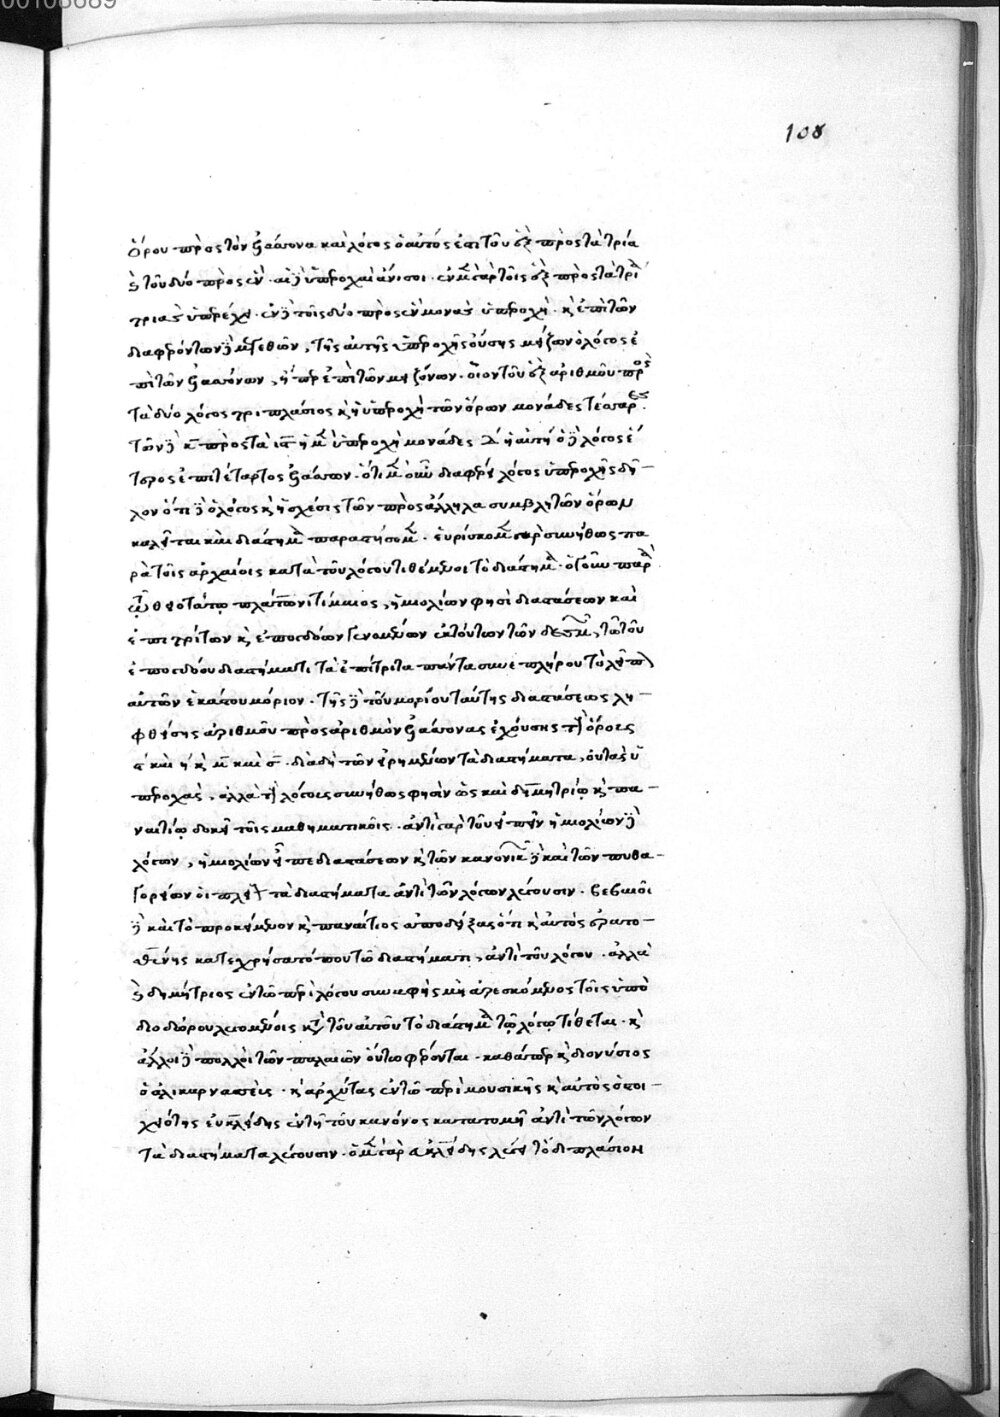 00108689
108
ὅρου πρὸς τὸν ἐλάσσονα καὶ λόγος ὁ αὐτός ἐστι τοῦ ἓξ πρὸς τὰ τρία
καὶ τοῦ δύο πρὸς ἕν · αἱ δὲ ὑπεροχαὶ ἄνισοι · ἐν μὲν γὰρ τοῖς ἓξ πρὸς τὰ τρία
τριὰς ὑπερέχει · ἐν δὲ τοῖς δύο πρὸς ἓν μονὰς ὑπεροχή · καὶ ἐπὶ τῶν
διαφερόντων δὲ μεγεθῶν, τῆς αὐτῆς ὑπεροχῆς οὔσης μείζων ὁ λόγος ἐ
πὶ τῶν ἐλασσόνων, ἤπερ ἐπὶ τῶν μειζόνων · οἷον τοῦ ἓξ ἀριθμοῦ πρὸς
τὰ δύο λόγος τριπλάσιος καὶ ἡ ὑπεροχὴ τῶν ὅρων μονάδες τέσσαρες ·
τῶν δὲ κ πρὸς τὰ ις ἡ μὲν ὑπεροχὴ μονάδες δ ἡ αὐτὴ ὁ δὲ λόγος ἕ
τερος ἐπιτέταρτος ἐλάσσων · ὅτι μὲν οὖν διαφέρει λόγος ὑπεροχῆς δῆ
λον ὅτι δὲ ὁ λόγος καὶ ἡ σχέσις τῶν πρὸς ἄλληλα συμβλητῶν ὅρων
καλεῖται καὶ διάστημα παραστήσομεν · εὑρίσκομεν γὰρ συνήθως πα
ρὰ τοῖς ἀρχαίοις κατὰ τοῦ λόγου τιθέμενοι τὸ διάστημα · ὅ γ' οὖν παρὰ
τῷ θειοτάτῳ πλάτωνι τίμαιος, ἡμιολίων φησὶ διαστάσεων καὶ
ἐπιτρίτων καὶ ἐπογδόων γενομένων ἐκ τούτων τῶν δεσμῶν, τῷ τοῦ
ἐπογδόου διαστήματι τὰ ἐπίτριτα πάντα συνεπλήρου τὸ λείπων
αὐτῶν ἑκάστου μόριον · τῆς δὲ τοῦ μορίου ταύτης διαστάσεως λη
φθείσης ἀριθμοῦ πρὸς ἀριθμὸν ἐλάσσονας ἐχούσης τοὺς ὅρους
ϛ καὶ ν καὶ μ καὶ σ · διὰ δὴ τῶν εἰρημένων τὰ διαστήματα, οὐ τὰς ὑ
περοχάς, ἀλλὰ τοὺς λόγους συνήθως φησὶν ὡς καὶ δημητρίῳ καὶ πα
ναιτίῳ δοκεῖ τοῖς μαθηματικοῖς · ἀντὶ γὰρ τοῦ εἰπεῖν ἡμιολίων δὲ
λόγων, ἡμιολίων εἶπε διαστάσεων καὶ τῶν κανονικῶν δὲ καὶ τῶν πυθα
γορείων οἱ πλείους τὰ διαστήματα ἀντὶ τῶν λόγων λέγουσιν · βεβαιοῖ
δὲ καὶ τὸ προκείμενον καὶ παναίτιος ἀποδείξας ὅτι καὶ αὐτὸς ἐρατο
σθένης κατεχρήσατό που τῷ διαστήματι, ἀντὶ τοῦ λόγου · ἀλλὰ
καὶ δημήτριος ἐν τῷ περὶ λόγου συναφῆς μὴ ἀρεσκόμενος τοῖς ὑπὸ
διοδώρου λεγομένοις κατὰ τοῦ αὐτοῦ τὸ διάστημα τῷ λόγῳ τίθεται · καὶ
ἄλλοι δὲ πολλοὶ τῶν παλαιῶν οὕτω φέρονται · καθάπερ καὶ διονύσιος
ὁ ἁλικαρνασσεὺς · καὶ ἀρχύτας ἐν τῷ περὶ μουσικῆς καὶ αὐτὸς ὁ στοι
χειώτης εὐκλείδης ἐν τῇ τοῦ κανόνος κατατομῇ ἀντὶ τῶν λόγων
τὰ διαστήματα λέγουσιν · ὁ μὲν γὰρ εὐκλείδης λέγει τὸ διπλάσιον